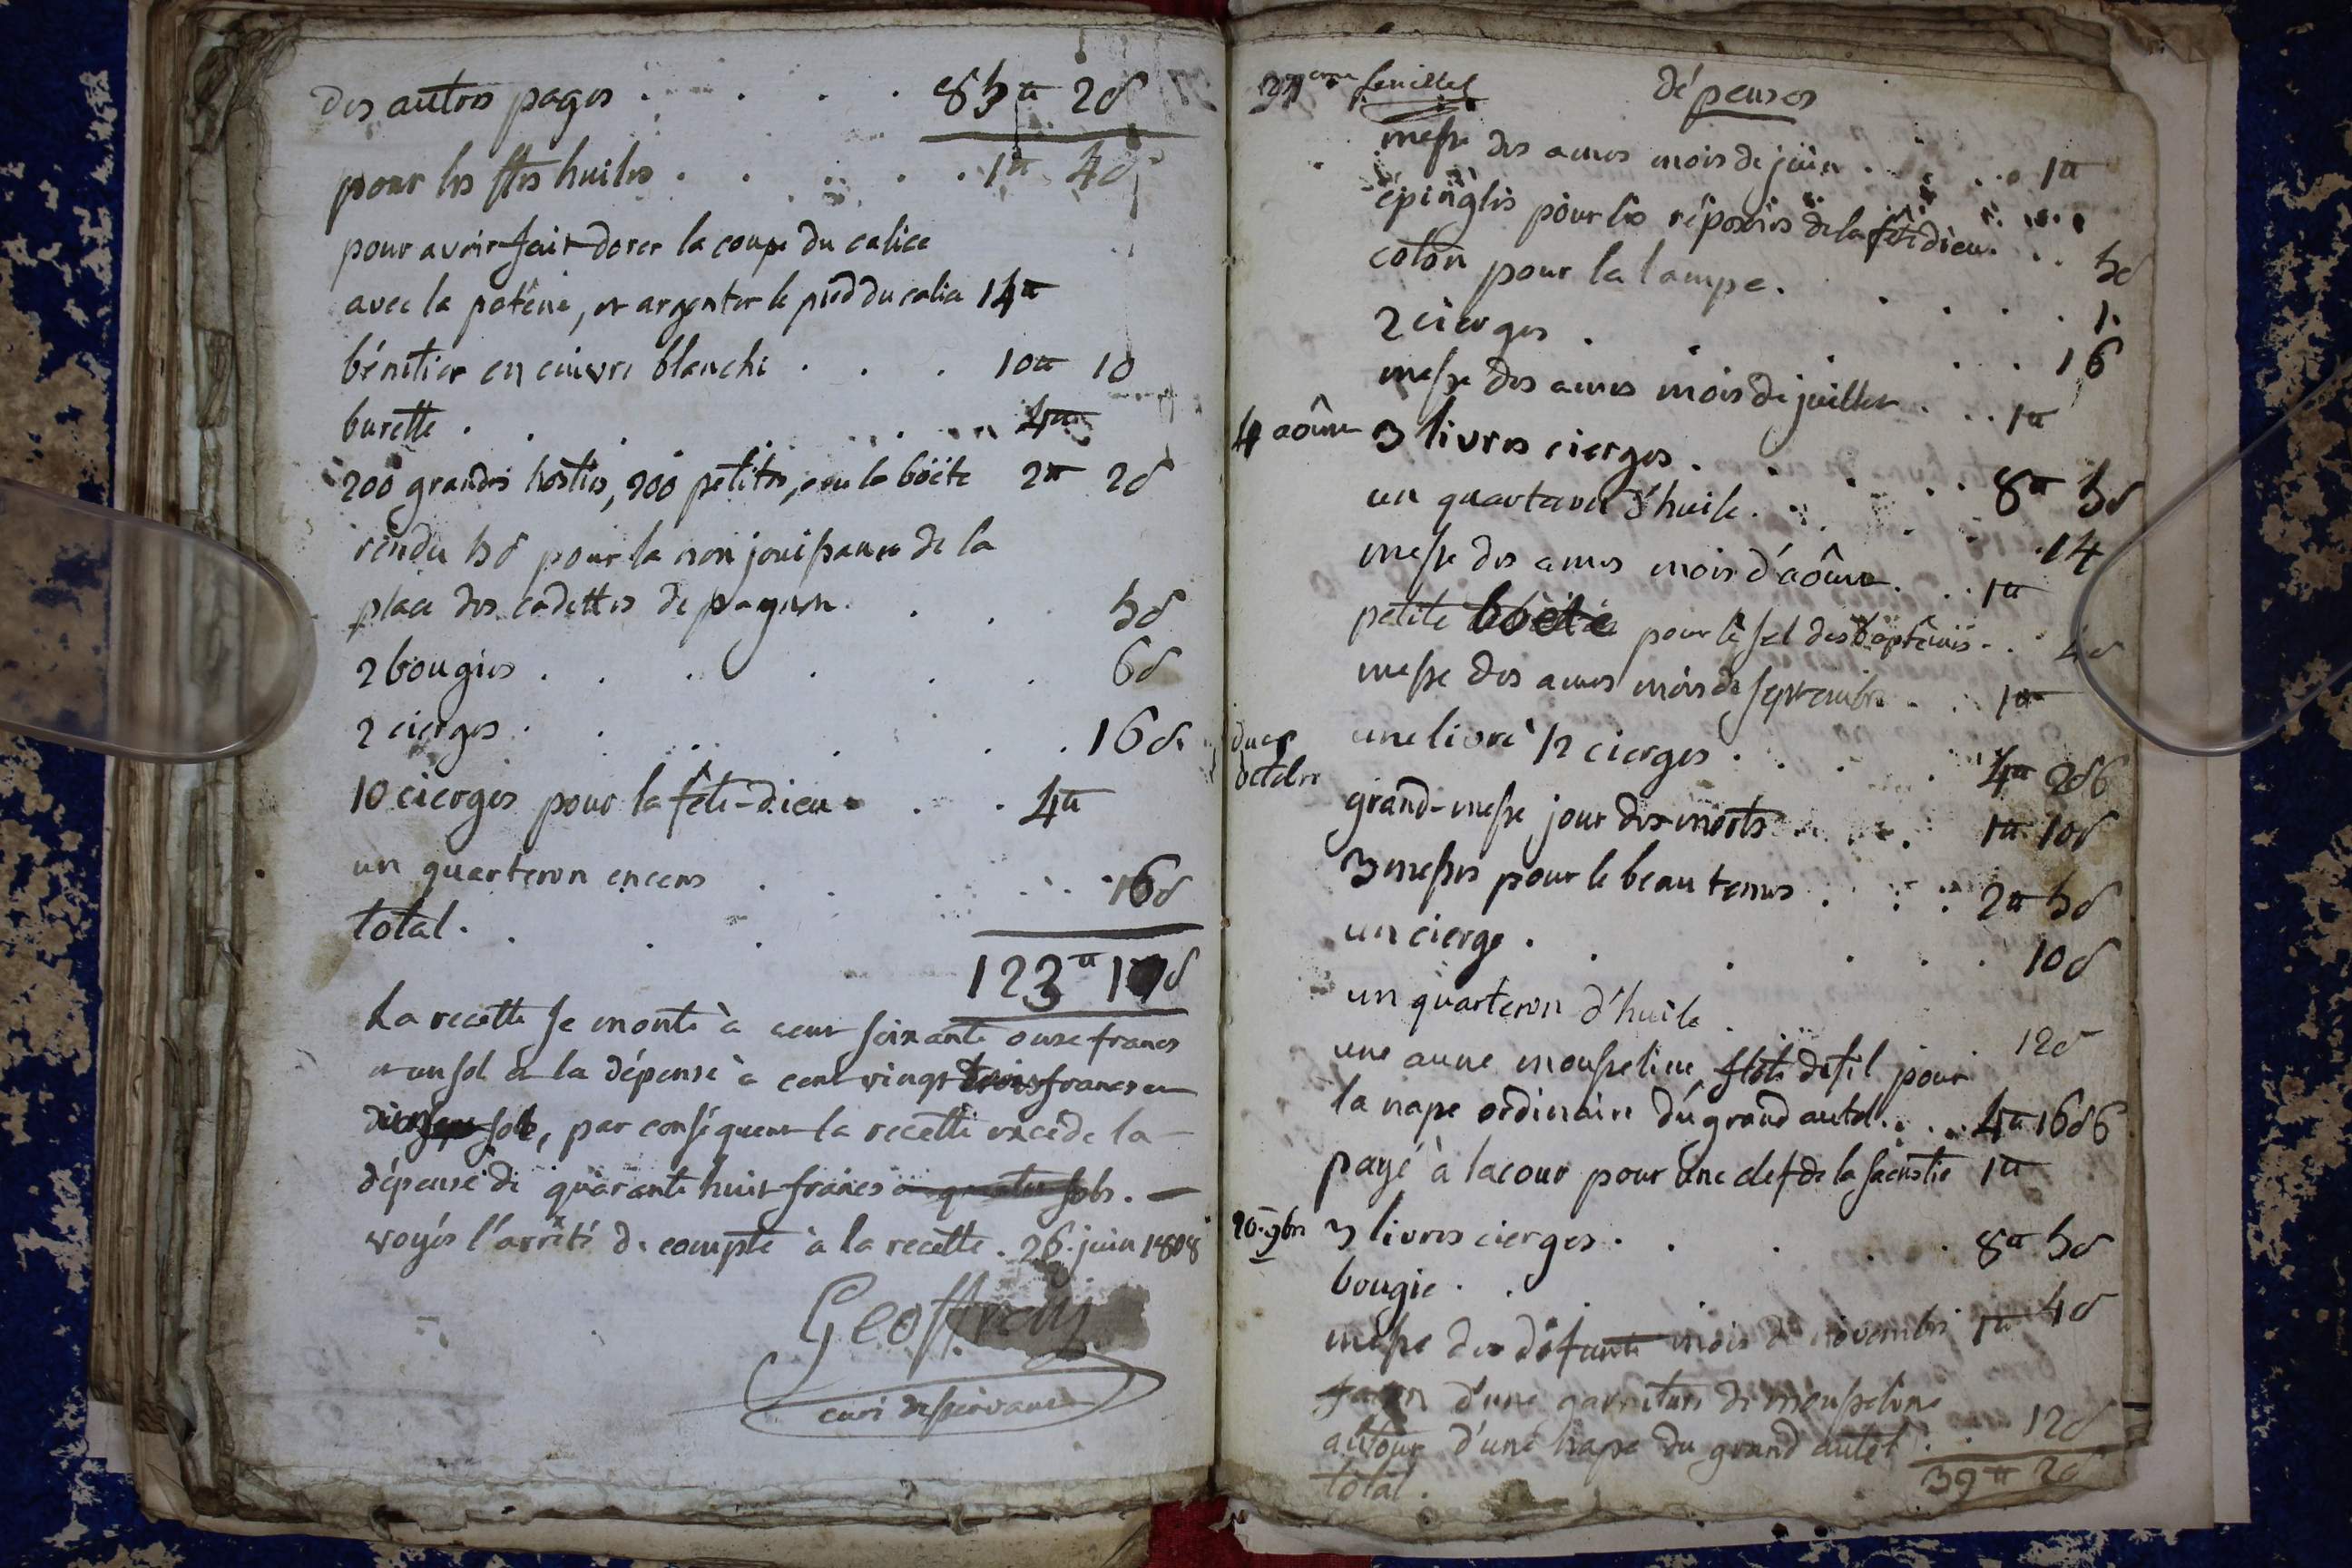 des autres pages . . . . . 85# 2s
pour les stes huiles . . . . . 1# 4s
pour avoir fait dorer la coupe du calice
avec la patêne, et argenter le pied du calice 14#
bénitier en cuivre blanchi . . . 10# 10
burette . . . . . 4#
200 grandes hosties, 200 petites, avec la boëte 2# 2s
rendu 5s pour la non jouissance de la
place des cadettes de . . . 5s
2 bougies . . . . . . 6s
2 cierges . . . . . . 16s
10 cierges pour la fête-dieu . . . 4#
un quarteron encens . . . . 16s
total . . . .
123# 1 s
La recette se monte à cent soixante onze francs
et un sol et la dépense à cent vingt trois francs et
dix sept sols, par conséquent la recette excède la
dépense de quarante huit francs et quatre sols. —
voyés l'arrêté de compte à la recette. 26 juin 1808
Geoffroy
curé desservant
37eme feuillet
dépenses
messe des ames mois de juin . . . . 1#
épingles pour les réposoirs de la fête dieu . . 5s
coton pour la lampe . . . . 1.
2 cierges . . . . . 16
messe des ames mois de juillet . . . 1#
4 aôust 3 livres cierges . . . . . 8# 5s
un quarteron d'huile . . . . . 14
messe des ames mois d'aôust . . . 1#
petite boëte pour le sel des baptêmes . . 4s
messe des ames mois de septembre . . 1#
du
octobre
une livre 1/2 cierges . . . . 4# 2s6
grand-messe jour des morts . . . 1# 10s
3 messes pour le beau tems . . . . 2# 5s
un cierge . . . . . . 10s
un quarteron d'huile . 12s
une aune mousseline, flote de fil pour
la nape ordinaire du grand autel . . . 4# 16s6
payé à lacour pour une clef de la sacristie 1#
20. 9bre 3 livres cierges . . . . 8# 5s
bougie . . . 4s
messe des défunts mois de novembre 1#
façon d'une garniture de mousseline
autour d'une nape du grand autel . . 12s
total . 39# 2s